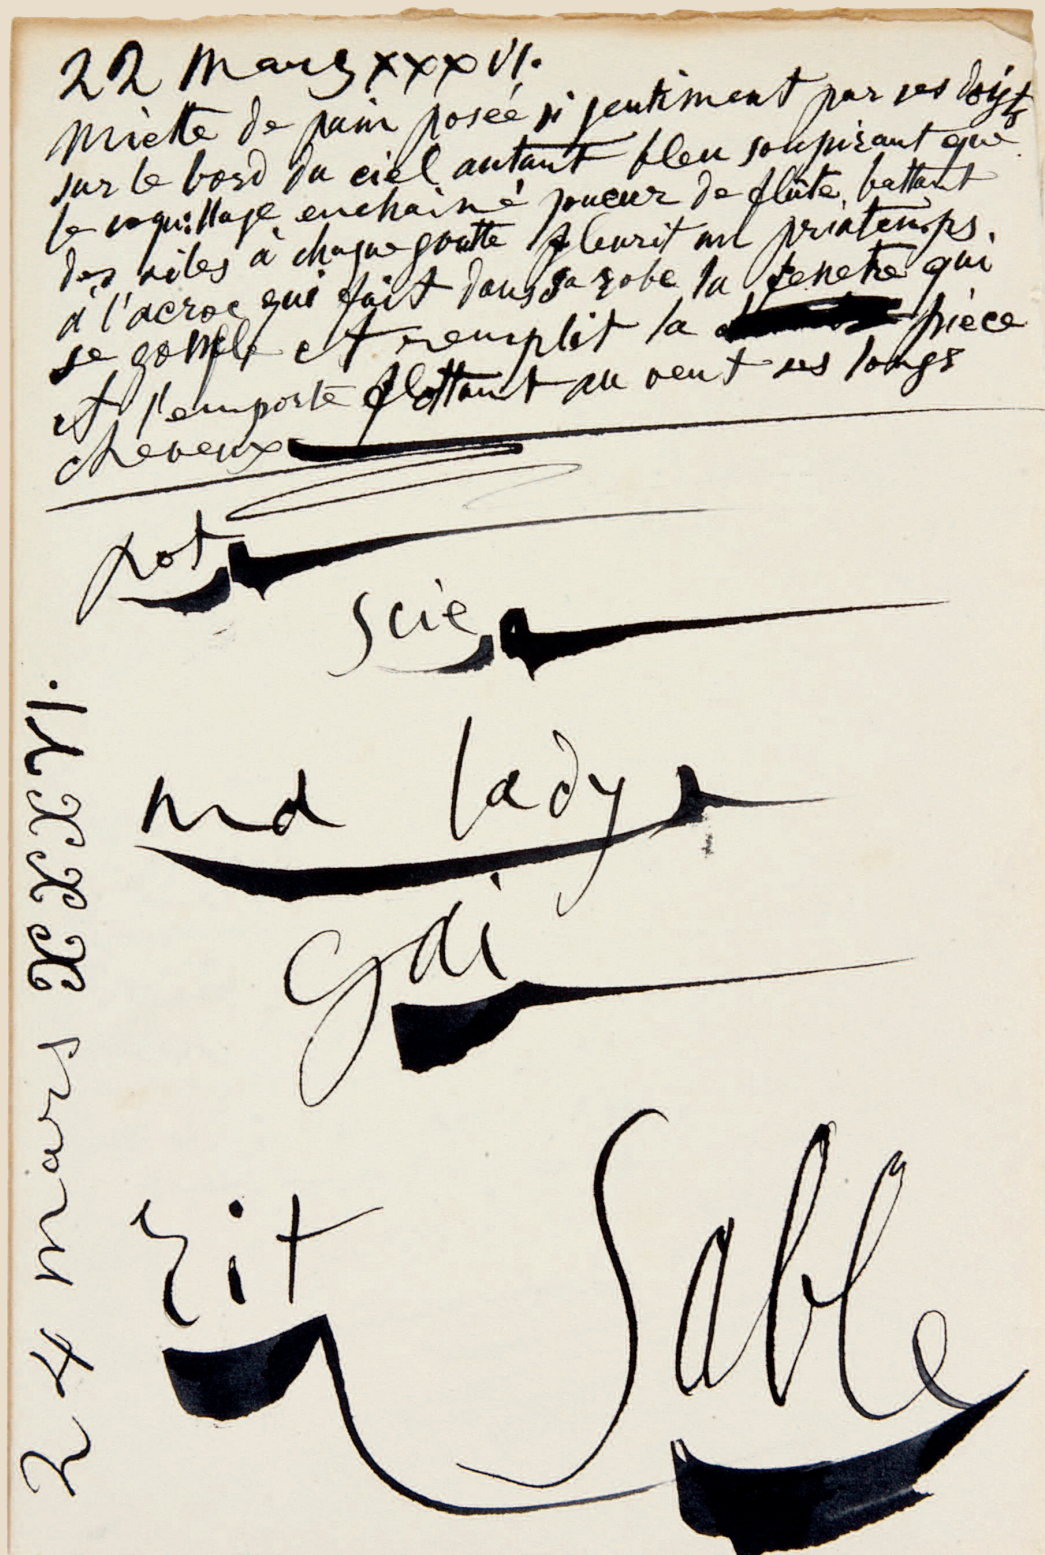 22 Mars XXXVI.
Miette de pain posée si gentiment par ses doigts
sur le bord du ciel autant bleu soupirant que
le coquillage enchainé joueur de flûte battant
des ailes à chaque goutte fleurit au printemps.
à l'accroc qui fait dans sa robe la fenetre qui
se gonfle et remplit la pièce
et l'emporte flottant au vent ses longs
cheveux
pot
scie
ma lady
gai
rit Sable
24 mars XXXVI.